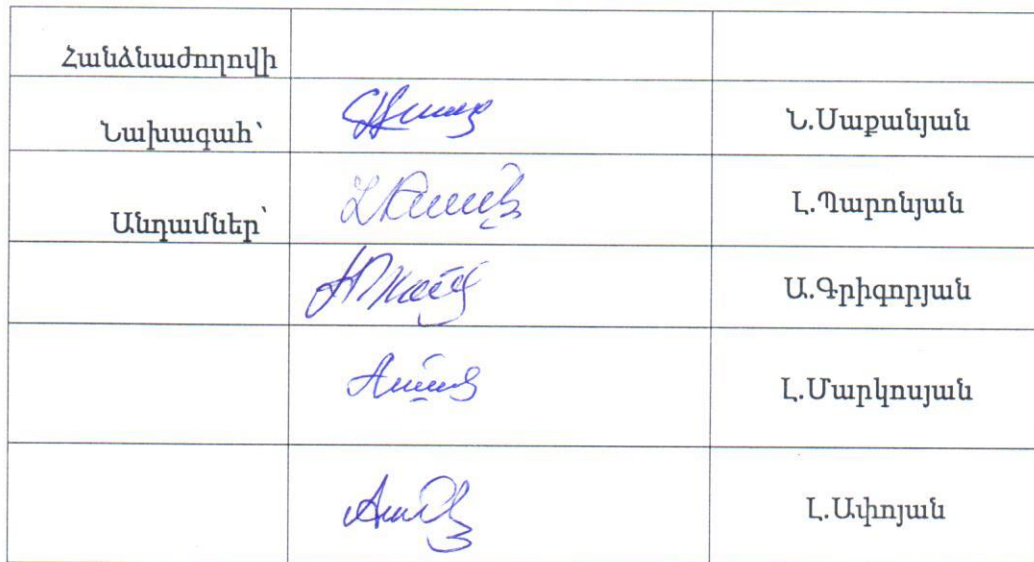 Հանձնաժողովի
Նախագահ՝ Ն.Սաքանյան
Անդամներ՝ Լ.Պարոնյան
Ա.Գրիգորյան
Լ.Մարկոսյան
Լ.Ափոյան